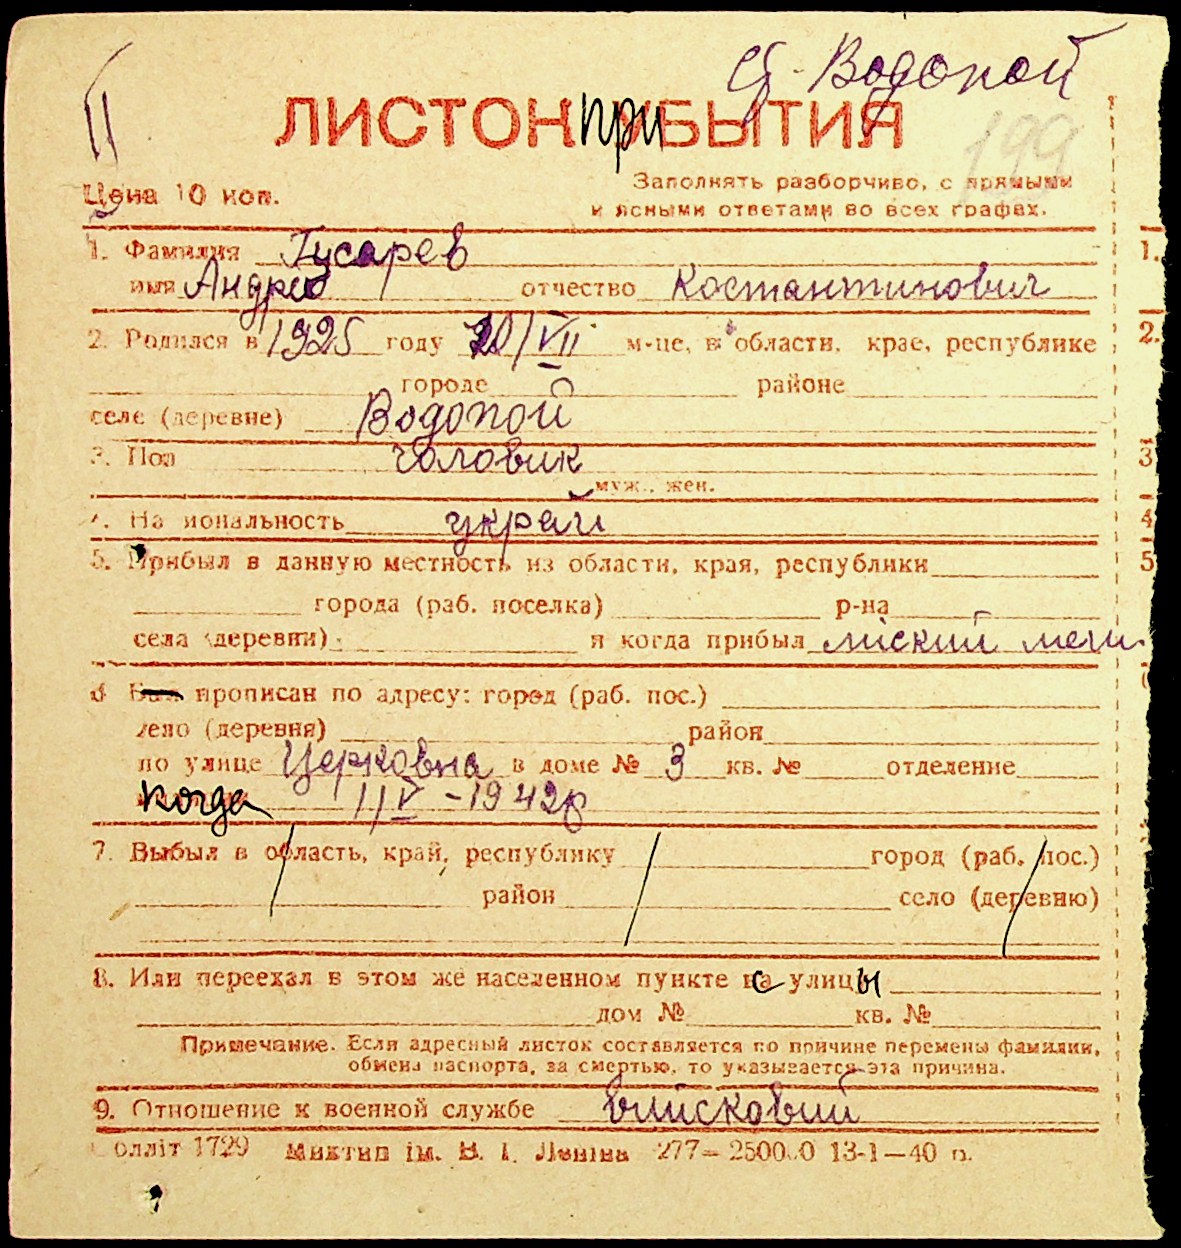 с. Водопой
II
ЛИСТОК прибытия
199
Цена 10 коп.
Заполнять разборчиво, с прямыми
и ясными ответами во всех графах.
1. Фамилия Гусарев
имя Андрей отчество Костантинович
2. Родился в 1925 году 20/VII м-це, в области, крае, республике
городе районе
селе (деревне) Водопой
3. Пол чоловик
муж., жен.
4. Национальность украй
5. Прибыл в данную местность из области, края, республики
города (раб. поселка) р-на
села (деревни) и когда прибыл міский меш
6 прописан по адресу: город (раб. пос.)
село (деревня) район
по улице Церковна в доме № 3 кв. № отделение
когда 1/V - 1942р
7. Выбыл в область, край, республику город (раб. пос.)
район село (деревню)
8. Или переехал в этом же населенном пункте с улицы
дом № кв. №
Примечание. Если адресный листок составляется по причине перемены фамилии,
обмена паспорта, за смертью, то указывается эта причина.
9. Отношение к военной службе війсковий
Облліт 1729 Миктип ім. В. І. Леніна 277— 250000 13-1—40 п.
1.
2.
3
4
5